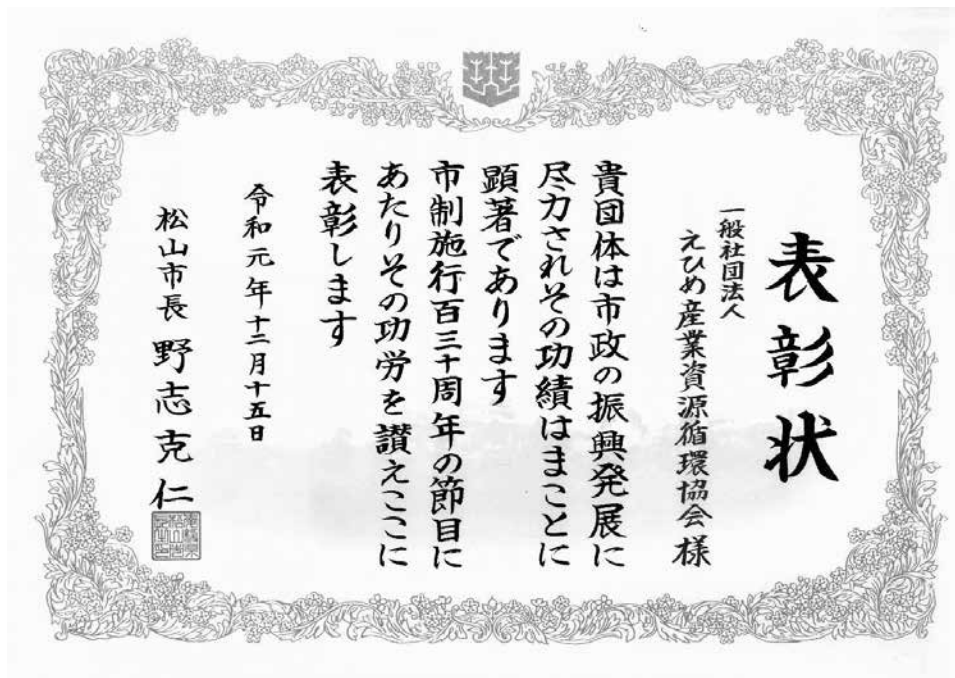 表彰状
一般社団法人
えひめ産業資源循環協会様
貴団体は市政の振興発展に
尽力されその功績はまことに
顕著であります
市制施行百三十周年の節目に
あたりその功労を讃えここに
表彰します
令和元年十二月十五日
松山市長 野志克仁